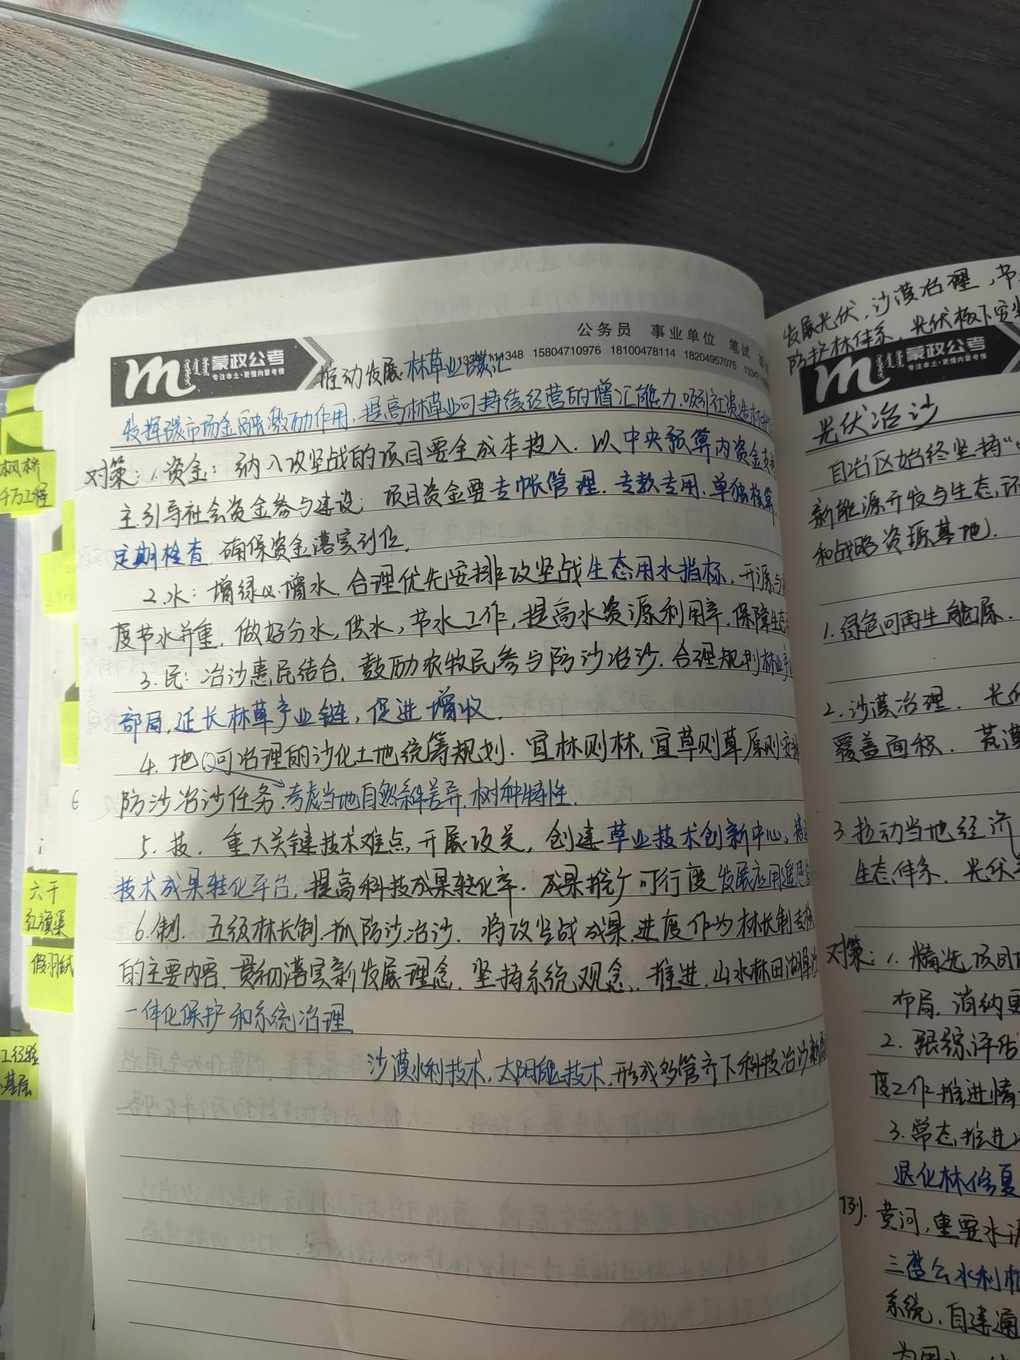 公务员 事业单位 笔试
1348 15804710976 18100478114 18204957075
蒙政公考
推动发展林草业碳汇
发挥碳市场金融激励作用,提高林草业可持续经营的增汇能力,吸引社资
对策:1.资金:纳入攻坚战的项目要全成本投入.以中央预算内资金支
主引导社会资金参与建设;项目资金要专帐管理.专款专用.单独核算
定期检查.确保资金落实到位.
2.水:增绿必增水.合理优先安排攻坚战生态用水指标.开源与
度节水并重.做好分水,供水,节水工作,提高水资源利用率.保障生态
3.民:治沙惠民结合.鼓励农牧民参与防沙治沙.合理规划林业产
部局,延长林草产业链,促进增收.
4.地 可治理的沙化土地统筹规划.宜林则林,宜草则草
防沙治沙任务.考虑当地自然条件差异.树种特性.
5.技.重大关键技术难点,开展攻关,创建草业技术创新中心,
技术成果转化平台,提高科技成果转化率.成果推广可行度
6.制.五级林长制.抓防沙治沙.将攻坚战成果.进度作为林长制
的主要内容.贯彻落实新发展理念.坚持系统观念.推进.山水林田湖草沙
一体化保护和系统治理
沙漠水利技术,太阳能技术,形成多管齐下科技治沙
枫桥
千万工程
六干
红旗渠
假羽绒
工经验
基层
发展光伏,沙漠治理,节
防护林体系,光伏板下
蒙政公考
光伏治沙
自治区始终坚持"
新能源开发与生态环
和战略资源基地.
1.绿色可再生能源.
2.沙漠治理.光伏
覆盖面积.荒漠
3拉动当地经济
生态体系.光伏
对策:1.精选项目
布局.消纳
2.跟踪评估
度工作推进情
3.常态推进
退化林修复
例.黄河,重要水源
三盛公水利枢
系统.自建